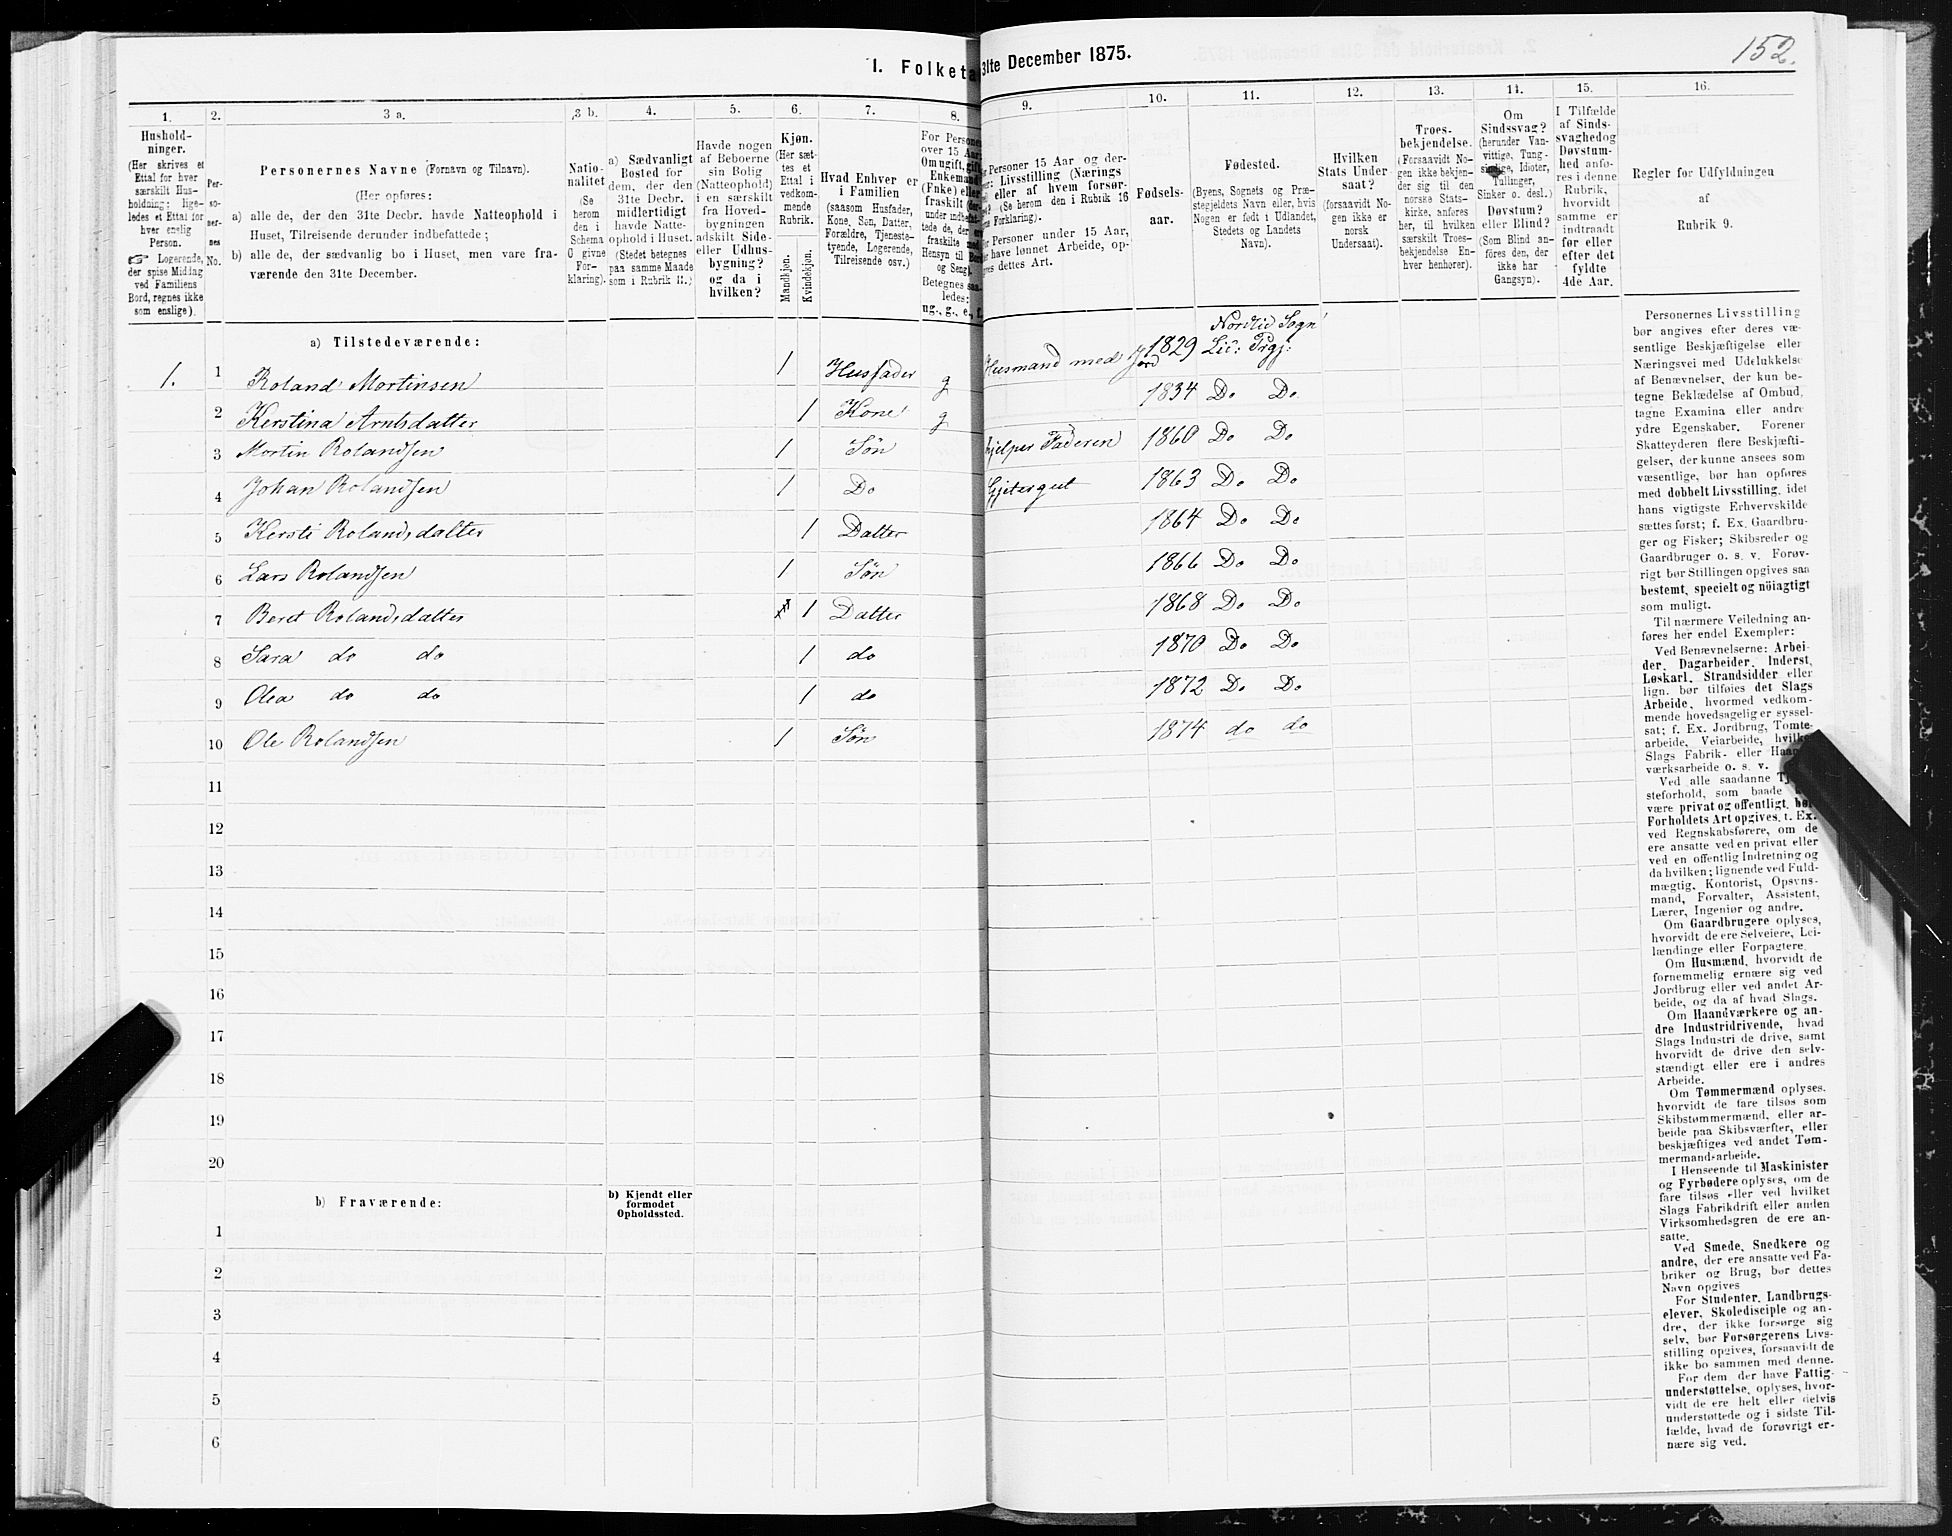 152.
1. Folketa 31te December 1875.
1. 2. 3 a. 3 b. 4. 5. 6. 7. 8. 9. 10. 11. 12. 13. 14. 15. 16.
Hushold-
ninger.
(Her skrives et
Ettal for hver
særskilt Hus-
holdning; lige-
ledes et Ettal for
hver enslig
Person.
☞ Logerende,
der spise Middag
ved Familiens
Bord, regnes ikke
som enslige).
Per-
so-
ner-
nes
No.
Personernes Navne (Fornavn og Tilnavn).
(Her opføres:
a) alle de, der den 31te Decbr. havde Natteophold i
Huset, Tilreisende derunder indbefattede;
b) alle de, der sædvanlig bo i Huset, men vare fra-
værende den 31te December.
Natio-
nalitet
(Se
herom
den i
Schema
O givne
For-
klaring).
a) Sædvanligt
Bosted for
dem, der den
31te Decbr.
midlertidigt
havde Natte-
ophold i Huset.
(Stedet betegnes
paa samme Maade
som i Rubrik 11.)
Havde nogen
af Beboerne
sin Bolig
(Natteophold)
i en særskilt
fra Hoved-
bygningen
adskilt Side-
eller Udhus-
bygning?
og da i
hvilken?
Kjøn.
(Her sæt-
tes et
Ettal i
vedkom-
mende
Rubrik.
Mandkjøn.
Kvindekjøn.
Hvad Enhver er
i Familien
(saasom Husfader,
Kone, Søn, Datter,
Forældre, Tjeneste-
tyende, Logerende,
Tilreisende osv.)
For Persone
over 15 Aar
Om ugift, gift,
Enkemand
(Enke) eller
fraskilt (der-
under indbefat-
tede de, der er
fraskilte med
Hensyn til Bord
og Seng).
Betegnes saa-
ledes:
ug., g., e., f.
Personer 15 Aar og der-
Livsstilling (Nærings
eller af hvem forsør-
(Se herom den i Rubrik 16
Forklaring).
Personer under 15 Aar,
have lønnet Arbeide, op-
es dettes Art.
Fødsels-
aar.
Fødested.
(Byens, Sognets og Præ-
stegjeldets Navn eller, hvis
Nogen er født i Udlandet,
Stedets og Landets
Navn).
Hvilken
Stats Under
saat?
(forsaavidt No-
gen ikke er
norsk
Undersaat).
Troes-
bekjendelse.
(Forsaavidt No-
gen ikke bekjen-
der sig til den
norske Stats-
kirke, anføres
her, til hvilken
særskilt Troes-
bekjendelse En-
hver henhører).
Om
Sindssvag?
(herunder Van-
vittige, Tung-
sindige, Idioter,
Tullinger,
Sinker o. desl.)
Døvstum?
eller Blind?
(Som Blind an-
føres den, der
ikke har
Gangsyn).
I Tilfælde
af Sinds-
svaghed og
Døvstum-
hed anfø-
res i denne
Rubrik,
hvorvidt
samme er
indtraadt
før eller
efter det
fyldte
4de Aar.
Regler for Udfyldningen
af
Rubrik 9.
a) Tilstedeværende:
1. 1 Roland Mortinsen 1 Husfader g Husmand med Jord 1829 Nordlid Sogn Lie: Prgj:
2 Kerstina Arntsdatter 1 Kone g 1834 Do Do
3 Mortin Rolandsen 1 Søn hjelper Faderen 1860 Do Do
4 Johan Rolandsen 1 Do Gjetergut 1863 Do Do
5 Kersti Rolandsdatter 1 Datter 1864 Do Do
6 Lars Rolandsen 1 Søn 1866 Do Do
7 Beret Rolandsdatter 1 Datter 1868 Do Do
8 Sara do do 1 do 1870 Do Do
9 Olea do do 1 do 1872 Do Do
10 Ole Rolandsen 1 Søn 1874 do do
11
12
13
14
15
16
17
18
19
20
b) Fraværende: b) Kjendt eller
formodet
Opholdssted.
1
2
3
4
5
6
Personernes Livsstilling
bør angives efter deres væ-
sentlige Beskjæftigelse eller
Næringsvei med Udelukkelse
af Benævnelser, der kun be-
tegne Beklædelse af Ombud,
tagne Examina eller andre
ydre Egenskaber. Forener
Skatteyderen flere Beskjæfti-
gelser, der kunne ansees som
væsentlige, bør han opføres
med dobbelt Livsstilling, idet
hans vigtigste Erhvervskilde
sættes først; f. Ex. Gaardbru-
ger og Fisker; Skibsreder og
Gaardbruger o. s. v. Forøv-
rigt bør Stillingen opgives saa
bestemt, specielt og nöiagtigt
som muligt.
Til nærmere Veiledning an-
føres her endel Exempler:
Ved Benævnelserne: Arbei-
der, Dagarbeider, Inderst,
Løskarl, Strandsidder eller
lign. bør tilføies det Slags
Arbeide, hvormed vedkom-
mende hovedsagelig er syssel-
sat; f. Ex. Jordbrug, Tomte-
arbeide, Veiarbeide, hvilke
Slags Fabrik- eller Haand-
værksarbeide o. s. v.
Ved alle saadanne Tje-
steforhold, som baade
være privat og offentligt, bør
Forholdets Art opgives, t. Ex.
ved Regnskabsførere, om de
ere ansatte ved en privat eller
ved en offentlig Indretning og
da hvilken; lignende ved Fuld-
mægtig, Kontorist, Opsyns-
mand, Forvalter, Assistent,
Lærer, Ingeniør og andre.
Om Gaardbrugere oplyses,
hvorvidt de ere Selveiere, Lei-
lændinge eller Forpagtere.
Om Husmænd, hvorvidt de
fornemmelig ernære sig ved
Jordbrug eller ved andet Ar-
beide, og da af hvad Slags.
Om Haandværkere og an-
dre Industridrivende, hvad
Slags Industri de drive, samt
hvorvidt de drive den selv-
stændigt eller ere i andres
Arbeide.
Om Tømmermænd oplyses,
hvorvidt de fare tilsøs som
Skibstømmermænd, eller ar-
beide paa Skibsværfter, eller
beskjæftiges ved andet Tøm-
mermandsarbeide.
I Henseende til Maskinister
og Fyrbødere oplyses, om de
fare tilsøs eller ved hvilket
Slags Fabrikdrift eller anden
Virksomhedsgren de ere an-
satte.
Ved Smede, Snedkere og
andre, der ere ansatte ved Fa-
briker og Brug, bør dettes
Navn opgives
For Studenter, Landbrugs-
elever, Skoledisciple og an-
dre, der ikke forsørge sig
selv, bør Forsørgerens Livs-
stilling opgives, forsaavidt de
ikke bo sammen med denne.
For dem, der have Fattig-
understøttelse, oplyses, hvor-
vidt de ere helt eller delvis
understøttede og i sidste Til-
fælde, hvad de forøvrigt er-
nære sig ved.